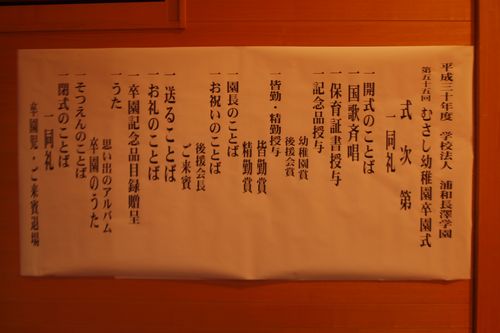 平成三十年度　学校法人　浦和長澤学園
第五十五回　むさし幼稚園卒園式
式次第
一同礼
一開式のことば
一国歌斉唱
一保育証書授与
一記念品授与
幼稚園賞
後援会賞
一皆勤・精勤授与
皆勤賞
精勤賞
一園長のことば
一お祝いのことば
後援会長
ご来賓
一送ることば
一お礼のことば
一卒園記念品目録贈呈
一うた
思い出のアルバム
卒園のうた
一そつえんのことば
一閉式のことば
一同礼
卒園児・ご来賓退場